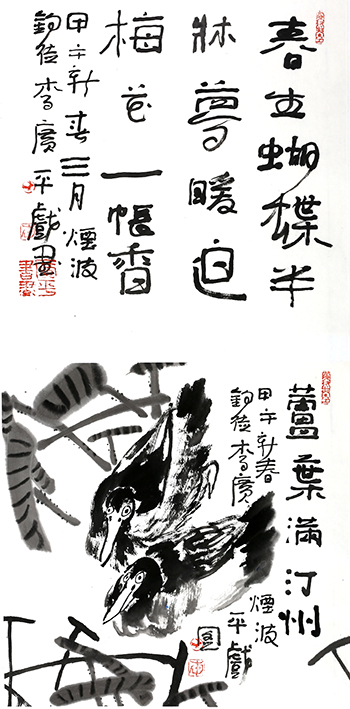 春生蝴蝶半
牀夢暖迫
梅花一帳香
甲午新春三月煙波
釣徒李廣平戲
蘆葉滿汀州
甲午新春煙波
釣徒李廣平戲
圖